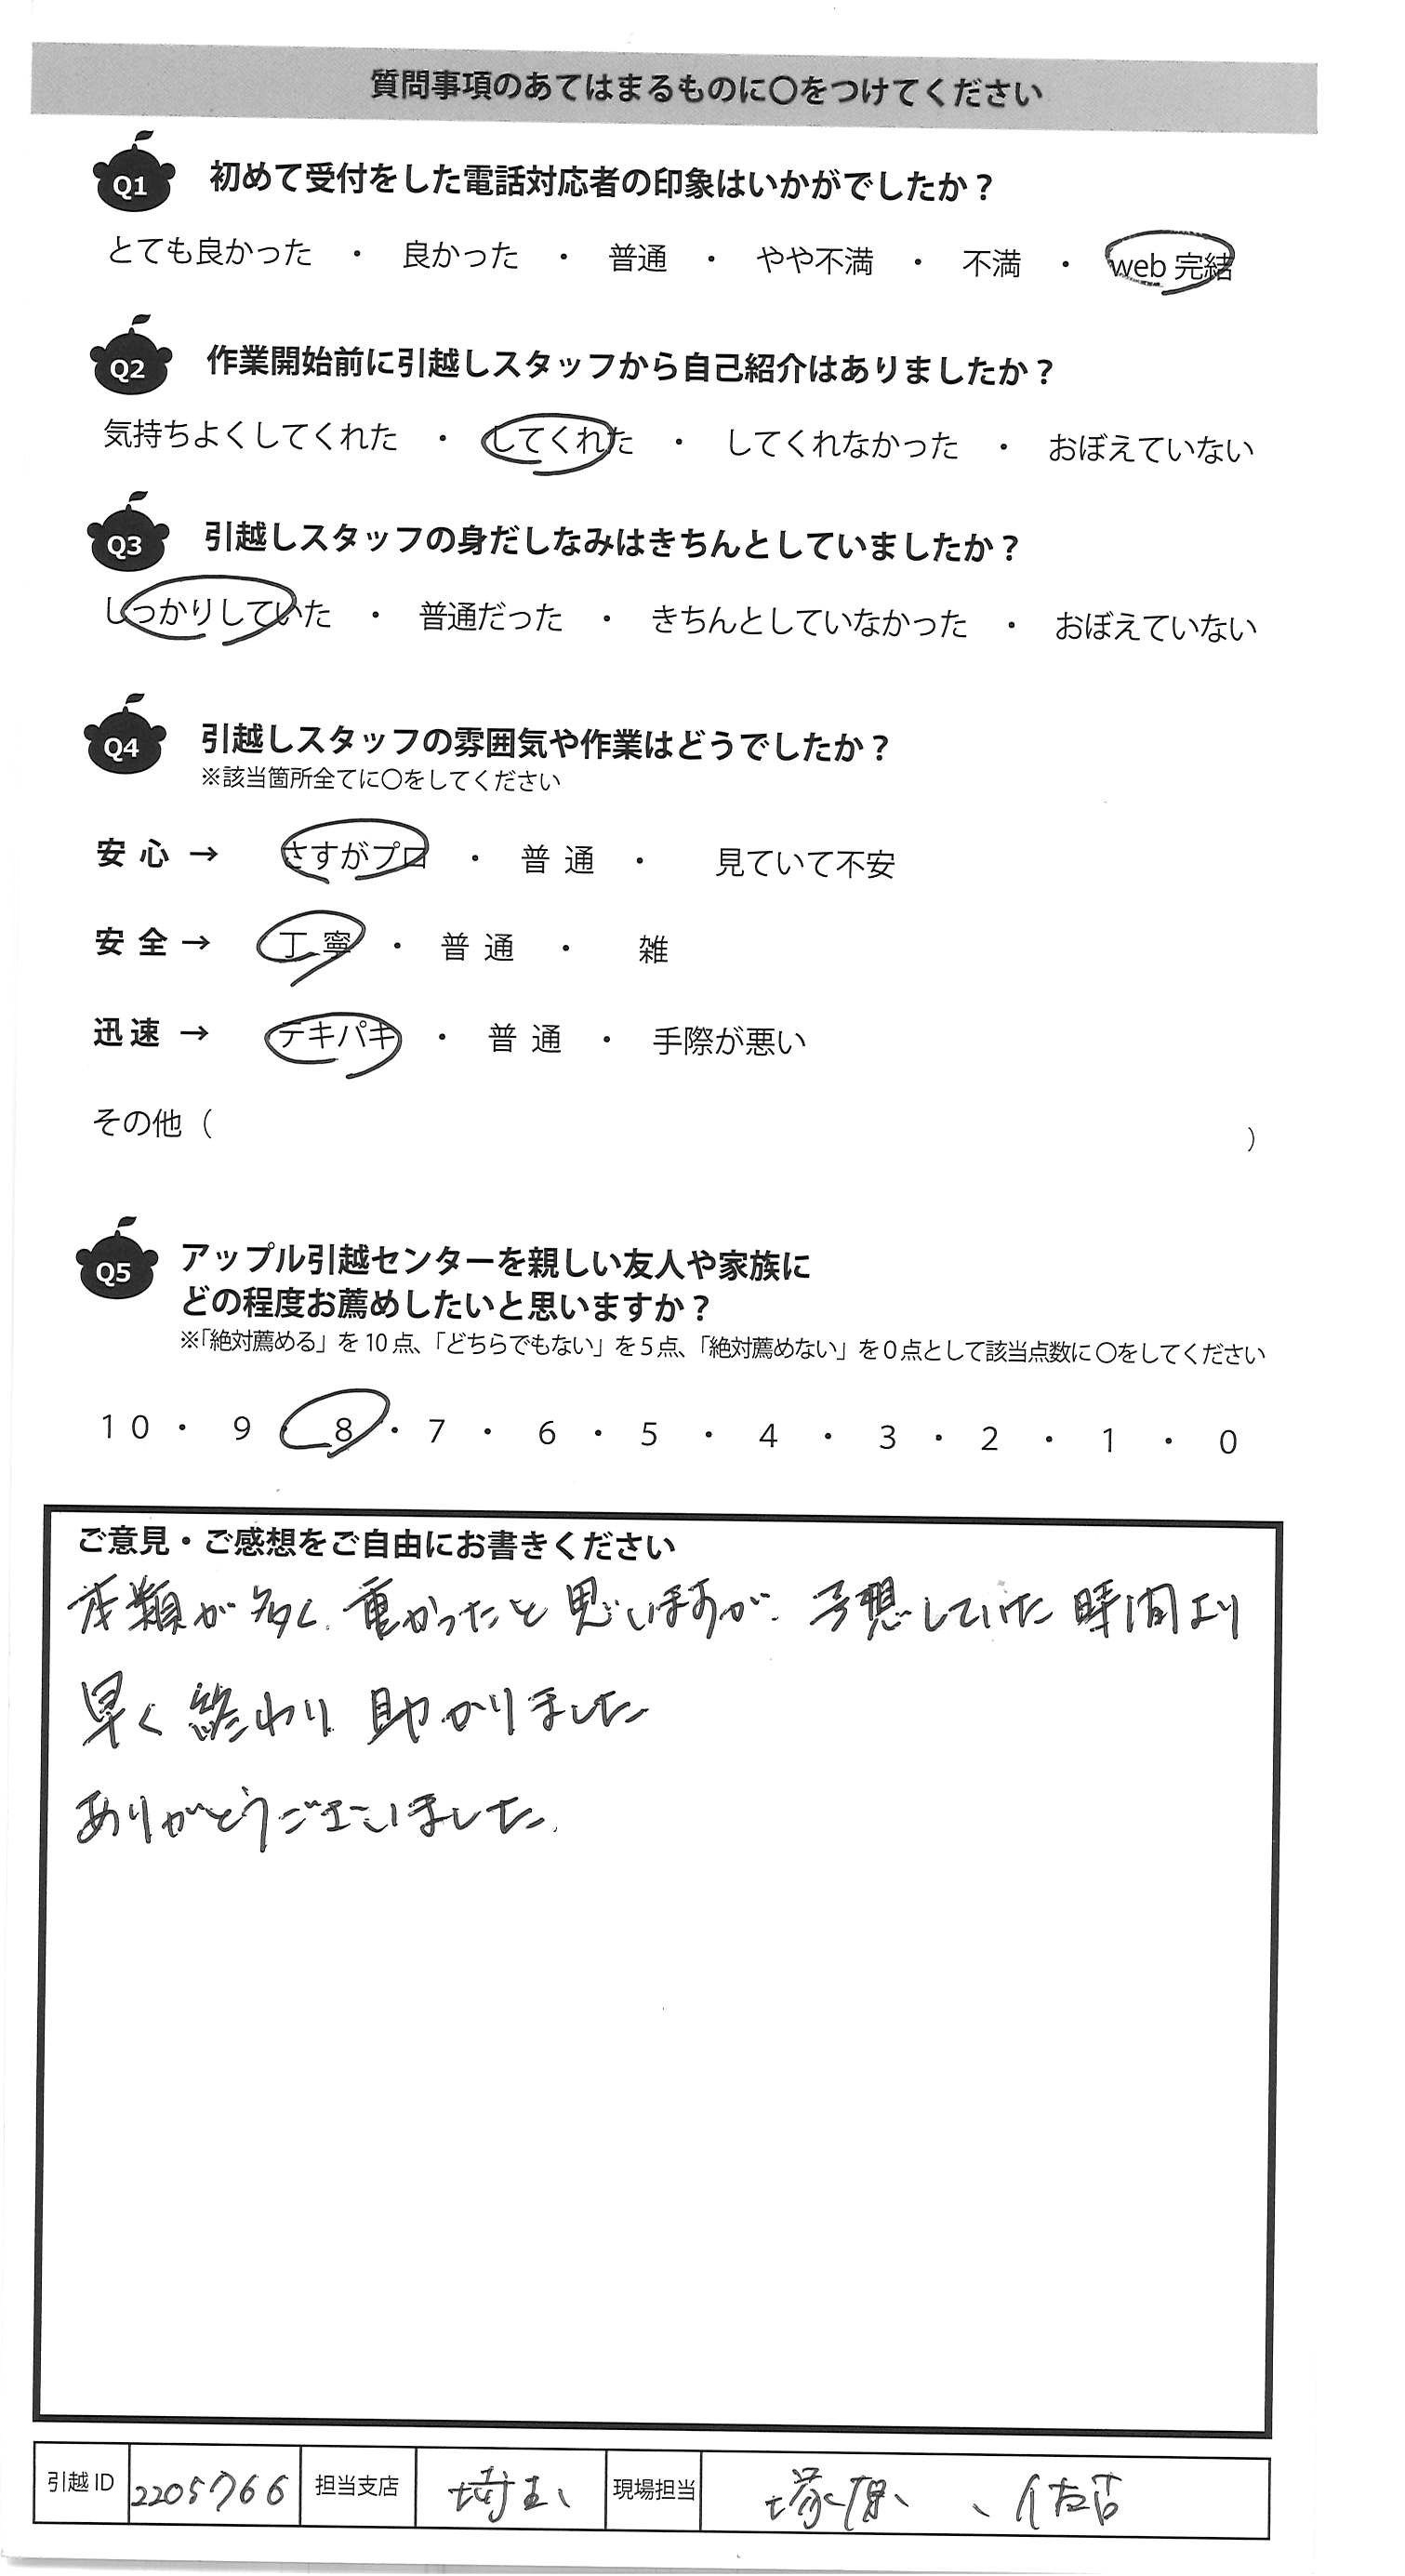 質問事項のあてはまるものに〇をつけてください
Q1 初めて受付をした電話対応者の印象はいかがでしたか？
とても良かった ・ 良かった ・ 普通 ・ やや不満 ・ 不満 ・ web 完結
Q2 作業開始前に引越しスタッフから自己紹介はありましたか？
気持ちよくしてくれた ・ してくれた ・ してくれなかった ・ おぼえていない
Q3 引越しスタッフの身だしなみはきちんとしていましたか？
しっかりしていた ・ 普通だった ・ きちんとしていなかった ・ おぼえていない
Q4 引越しスタッフの雰囲気や作業はどうでしたか？
※該当箇所全てに〇をしてください
安心 → さすがプロ ・ 普通 ・ 見ていて不安
安全 → 丁寧 ・ 普通 ・ 雑
迅速 → テキパキ ・ 普通 ・ 手際が悪い
その他（ ）
Q5 アップル引越センターを親しい友人や家族に
どの程度お薦めしたいと思いますか？
※「絶対薦める」を 10 点、「どちらでもない」を 5 点、「絶対薦めない」を 0 点として該当点数に〇をしてください
10 ・ 9 8 ・ 7 ・ 6 ・ 5 ・ 4 ・ 3 ・ 2 ・ 1 ・ 0
ご意見・ご感想をご自由にお書きください
本類が多く、重かったと思いますが、予想していた時間より
早く終わり助かりました
ありがとうございました。
引越 ID 2205766 担当支店 埼玉 現場担当 塚原 、佐古